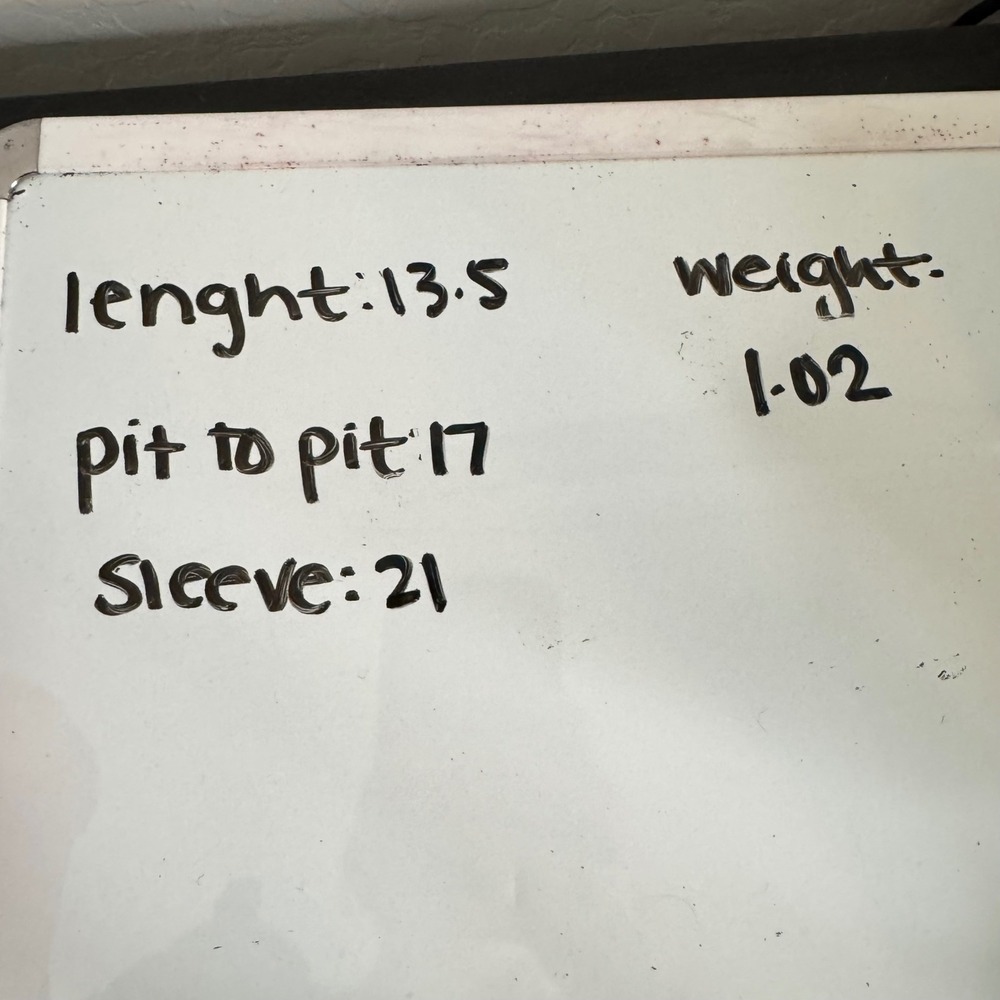 lenght: 13.5
weight:
1.02
pit to pit: 17
Sleeve: 21